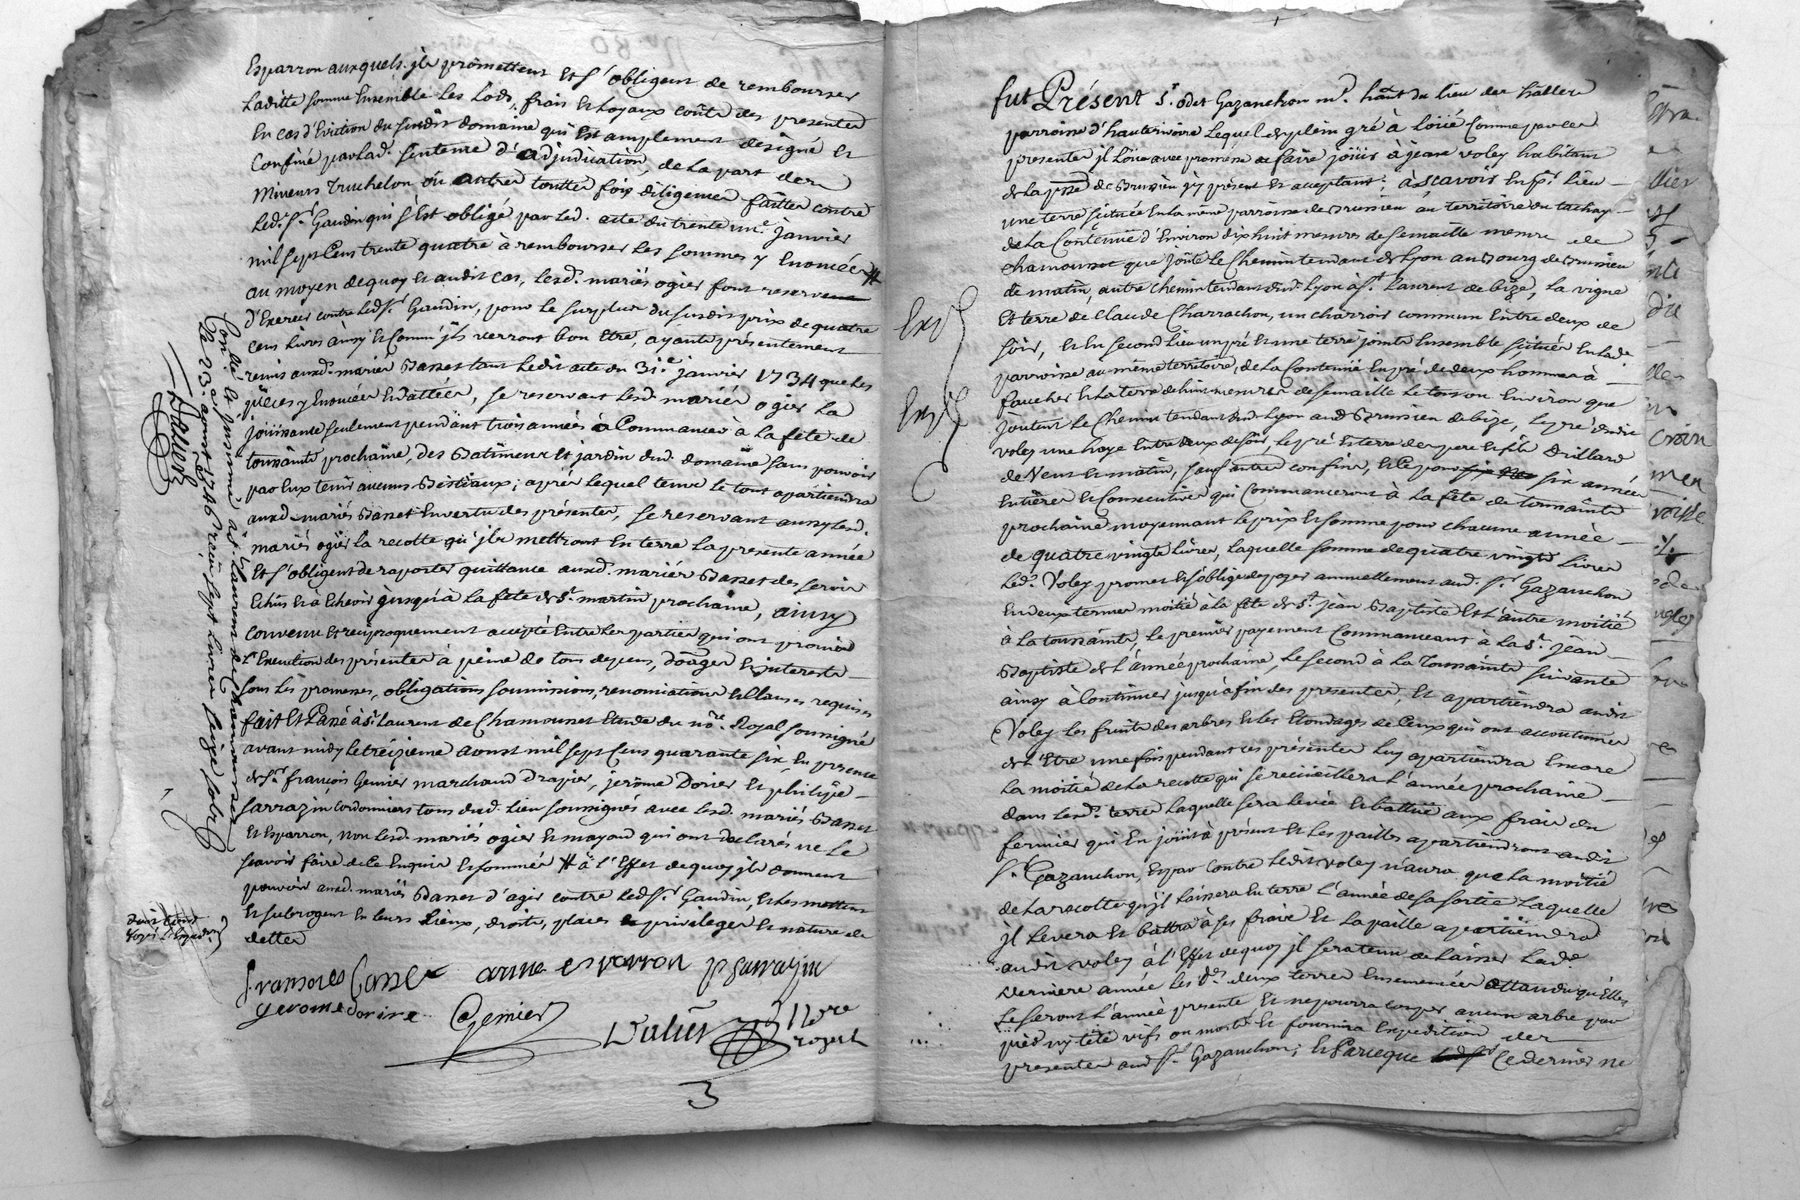 Esparron auxquels jls promettent Et s'obligent de rembourser
Laditte somme Ensemble Les Lods, frais Et Loyaux coûts des presentes
En cas d'Eviction du susdit domaine qui Est amplement désigné Et
Confiné par Lad. sentence d'adjudication, de La part des
Mineurs Truchelon ou autres touttes fois diligences faittes contre
Led. Sr. Gaudin qui s'Est obligé par Led. acte du trente un.e janvier
mil sept Cens trente quatre à rembourser Les sommes y Enoncées #
au moyen de quoy Et audit cas, Lesd. mariés ogier font reserve
d'Exercer contre Led. Sr. Gaudin, pour Le surplus du susdit prix de quatre
cens Livres ainsy Et Comm' jls verront bon Etre, ayants présentement
remis auxd. mariés Basset tant Ledit acte du 31.e janvier 1734 que Les
pièces y Enoncées Et dattées, se reservant Lesd. mariés ogier La
joüissance seulement pendant trois années à Commancer à La fête de
toussaints prochaine, des Batimens Et jardin dud. domaine sans pouvoir
par Eux tenir aucuns Bestiaux; après Lequel tems Le tout apartiendra
auxd. mariés Basset En vertu des présentes, se reservant aussy Lesd.
mariés ogier La recolte qu'jls mettront En terre La presente année
Et s'obligent de raporter quittance auxd. mariés Basset des servis
Echus Et à Echeoir jusqu'à La fête de St. martin prochaine, ainsy
convenu Et reciproquement accepté Entre Les parties qui ont promis
L'Execution des présentes à peine de tous depens, domages Et interests
sous Les promesses, obligations soumissions, renonciations Et Clauses requises
fait Et Passé à St. Laurent de Chamousset Etude du no.re Royal soussigné
avant midy Le treizieme aoust mil sept Cens quarante six, En presence
de Sr. françois Gemier marchand drapier, jerôme Dorier Et philipe
Sarrazin Cordonniers tous dud. Lieu soussignés avec Lesd. mariés Basset
Et Esparron, non Lesd. mariés ogier Et mayoud qui ont declarés ne Le
sçavoir faire de Ce Enquis Et sommés # à L'Effet de quoy jls donnent
pouvoir auxd. mariés Basset d'agir contre Led. Sr. Gaudin, Et Les mettent
Et subrogent En Leurs Lieux, droits, places Et privileges Et nature de
dettes
anne esparron p sarrazin
Gemier
No.re
royal
3
Con.lé à St. Laurent de Chamousset
Le 23 aoust 1746 Reçu sept Livres
fut Présent Sr. odet Gazanchon m.d
parroisse d'hauterivoire Lequel de plein gré à Loüé Comme par Les
presentes jl Loüe avec promesse de faire joüir à jean voley habitant
de La p.sse de Brussieu jcy présent Et acceptant; à Sçavoir En p.r Lieu
une terre scituée En La même parroisse de Brussieu au territoire du tachay
de La Contenüe d'Environ dix huit mesures de semaille mesure de
chamousset que joûte Le Chemin tendant de Lyon au Bourg de Brussieu
de matin, autre Chemin tendant dud. Lyon à St. Laurent de bize, La vigne
Et terre de Claude Charrachon, un charrois commun Entre deux de
soir, Et En second Lieu un pré Et une terre joints Ensemble scitués En Lade
parroisse au même territoire, de La Contenüe Le pré de deux hommes à
faucher Et La terre de huit mesures de semaille Le tout ou Environ que
joûtent Le Chemin tendant dud. Lyon aud. Brussieu de bize, Le pré dudit
voley une haye Entre deux de soir, Le pré Et terre des pere Et fils Drillard
de Vent Et matin, sauf autres confins, Et Ce pour six années
Entières Et Consecutives qui Commanceront à La fête de toussaints
prochaine moyennant Le prix Et somme pour chacune année
de quatre vingts Livres, Laquelle somme de quatre vingts Livres
Led. Voley promet Et s'oblige de payer annuellement aud. Sr. Gazanchon
En deux termes moitié à La fête de St. jean Baptiste Et L'autre moitié
à La toussaints, Le premier payement Commanceant à La St. jean
Baptiste de L'année prochaine, Le second à La Toussaints suivante
ainsy à Continuer jusqu'à fin des presentes, Et apartiendra audit
Voley Les fruits des arbres Et Les Etondages de Ceux qui ont accoutumés
de L'Etre une fois pendant ces présentes Luy apartiendra Encore
La moitié de La recolte qui se recüeillera L'année prochaine
dans Lesd. terres Laquelle sera Levée Et battüe aux frais du
fermier qui En joüit à présent Et Les pailles apartiendront audit
Sr. Gazanchon, Et par Contre Ledit voley n'aura que La moitié
de La recolte qu'jl Laissera En terre L'année de sa sortie Laquelle
jl Levera Et battra à ses frais Et La paille apartiendra
audit voley à L'Effet de quoy jl sera tenu de Laisser Lad.e
derniere année Les d. deux terres Ensemencées attandu qu'Elles
Le seront L'année presente Et ne pourra couper aucun arbre par
pied ny tête vifs ou morts Et fournira Expedition des
presentes aud. Sr. Gazanchon; Et Parceque Ce dernier ne